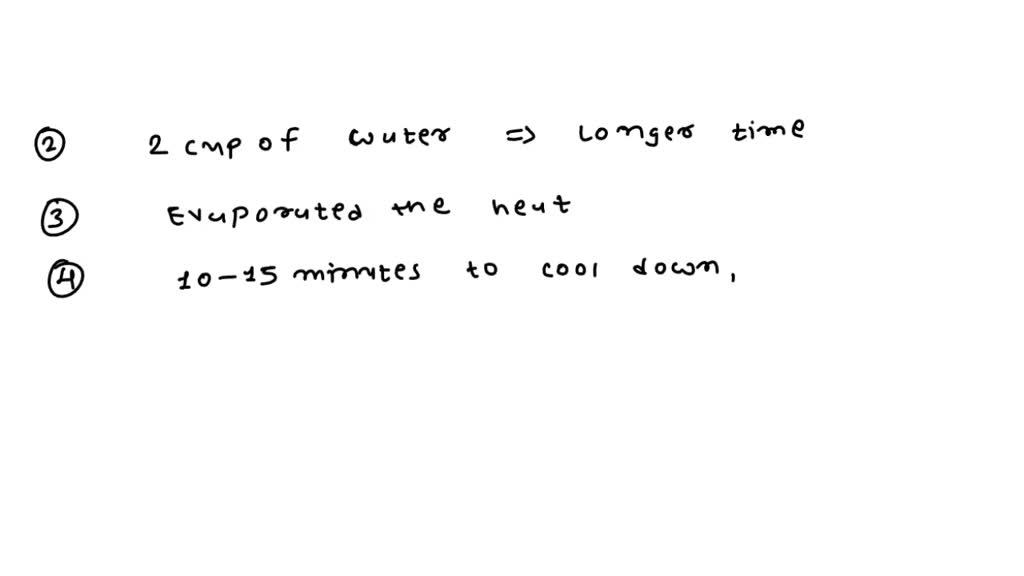 ② 2 cup of water => Longer time
③ Evaporated the heat
④ 10-15 minutes to cool down,